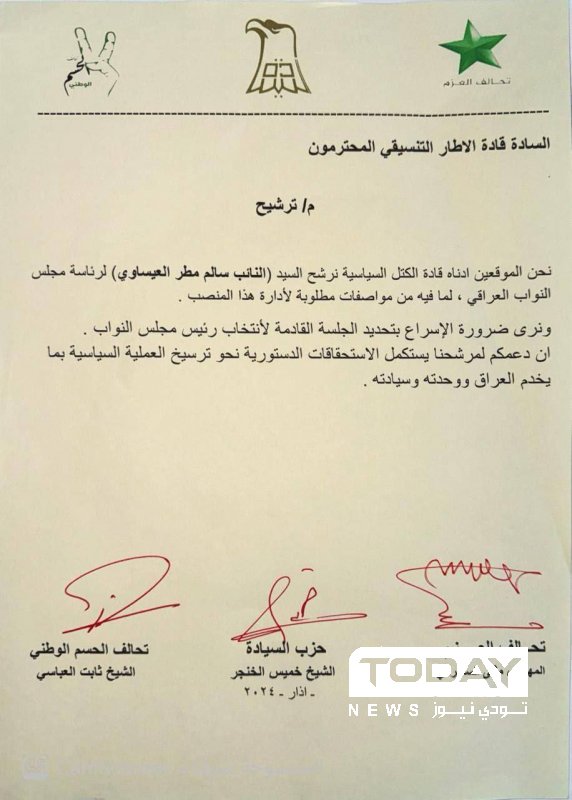 الحسم
الوطني
السيادة
تحالف العزم
السادة قادة الاطار التنسيقي المحترمون
م/ ترشيح
نحن الموقعين ادناه قادة الكتل السياسية نرشح السيد (النائب سالم مطر العيساوي) لرئاسة مجلس
النواب العراقي ، لما فيه من مواصفات مطلوبة لأدارة هذا المنصب .
ونرى ضرورة الإسراع بتحديد الجلسة القادمة لأنتخاب رئيس مجلس النواب .
ان دعمكم لمرشحنا يستكمل الاستحقاقات الدستورية نحو ترسيخ العملية السياسية بما
يخدم العراق ووحدته وسيادته .
تحالف
حزب السيادة
تحالف الحسم الوطني
الشيخ خميس الخنجر
الشيخ ثابت العباسي
- اذار - ٢٠٢٤
TODAY
NEWS تودي نيوز